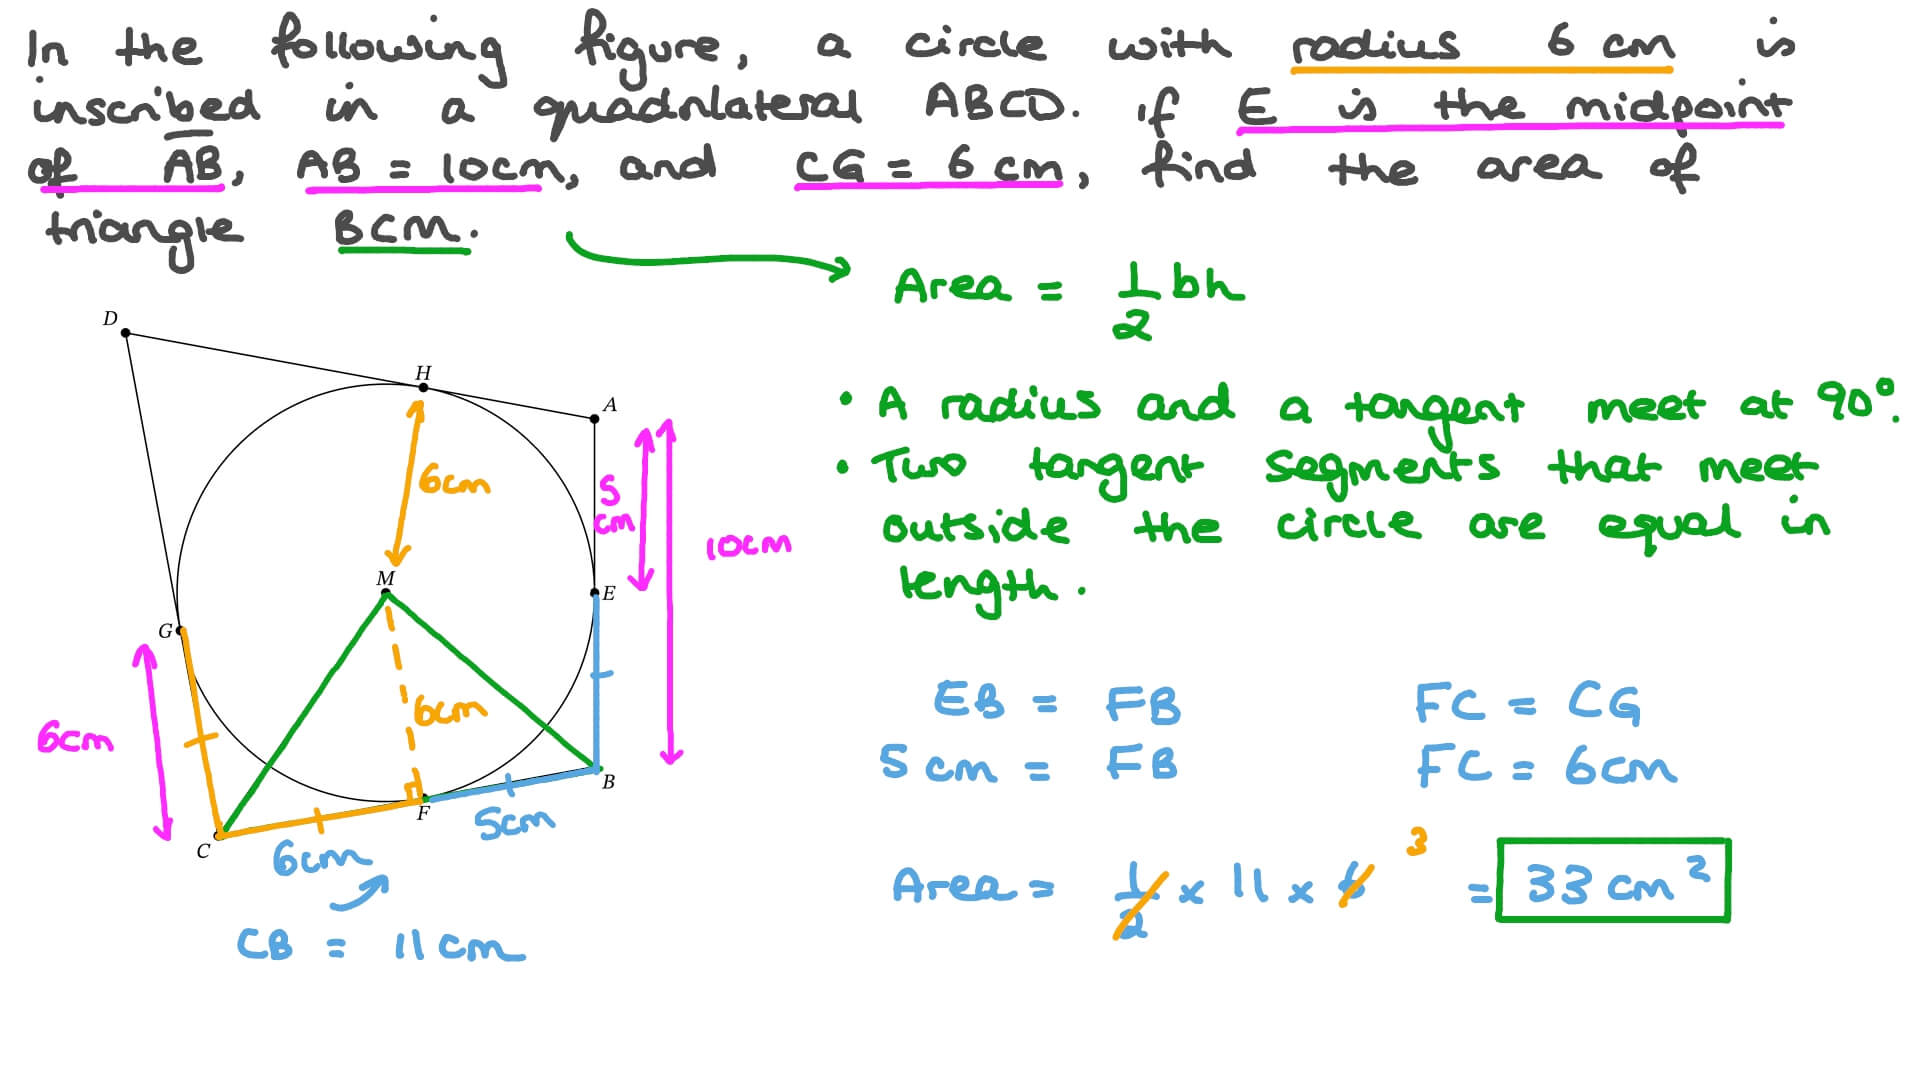 In the following figure, a circle with radius 6 cm is
inscribed in a quadrilateral ABCD. if E is the midpoint
of AB, AB = 10cm, and CG = 6 cm, find the area of
triangle BCM.
Area = 1/2 bh
• A radius and a tangent meet at 90°.
• Two tangent segments that meet
outside the circle are equal in
length.
D
H
A
6cm
5
cm
10cm
M
E
G
6cm
6cm
B
F
5cm
C
6cm
CB = 11cm
EB = FB
5cm = FB
FC = CG
FC = 6cm
3
Area = 1/2 × 11 × 6 = 33 cm²